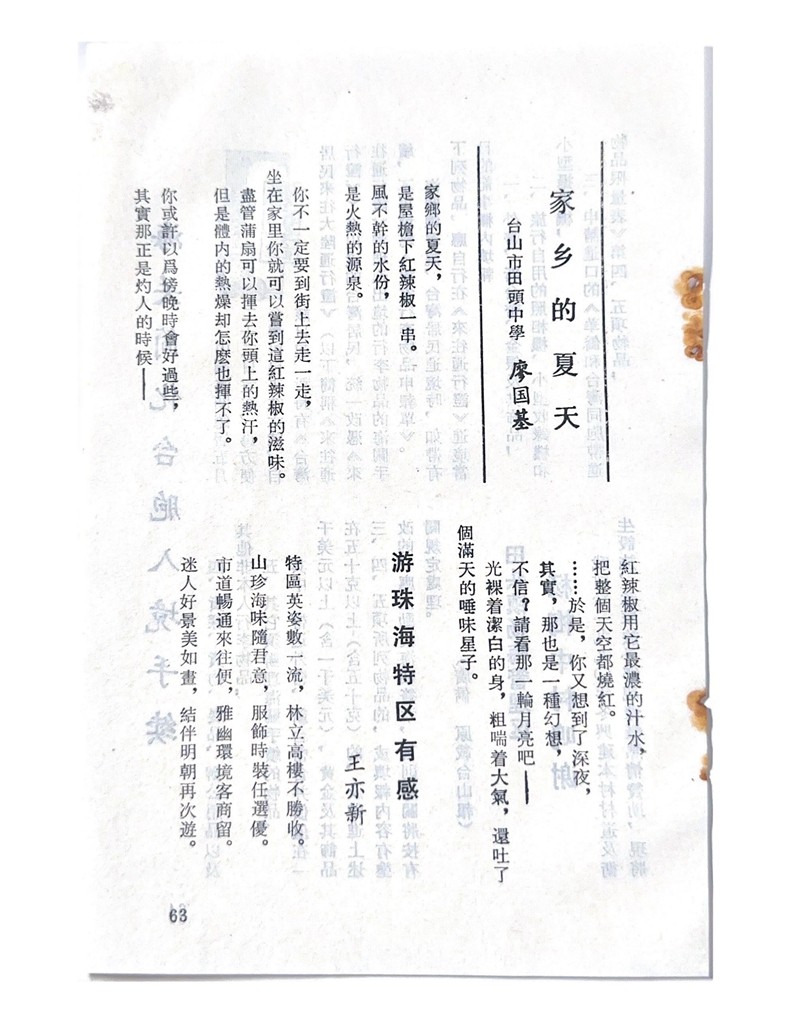 家乡的夏天
台山市田頭中學 廖国基
家鄉的夏天，
是屋檐下紅辣椒一串。
風不幹的水份，
是火熱的源泉。
你不一定要到街上去走一走，
坐在家里你就可以嘗到這紅辣椒的滋味。
盡管蒲扇可以揮去你頭上的熱汗，
但是體內的熱燥却怎麽也揮不了。
你或許以爲傍晚時會好過些，
其實那正是灼人的時候——
紅辣椒用它最濃的汁水，
把整個天空都燒紅。
……於是，你又想到了深夜，
其實，那也是一種幻想，
不信？請看那一輪月亮吧——
光裸着潔白的身，粗喘着大氣，還吐了
個滿天的唾味星子。
游珠海特区有感
王亦新
特區英姿數一流，林立高樓不勝收。
山珍海味隨君意，服飾時裝任選優。
市道暢通來往便，雅幽環境客商留。
迷人好景美如畫，結伴明朝再次遊。
63